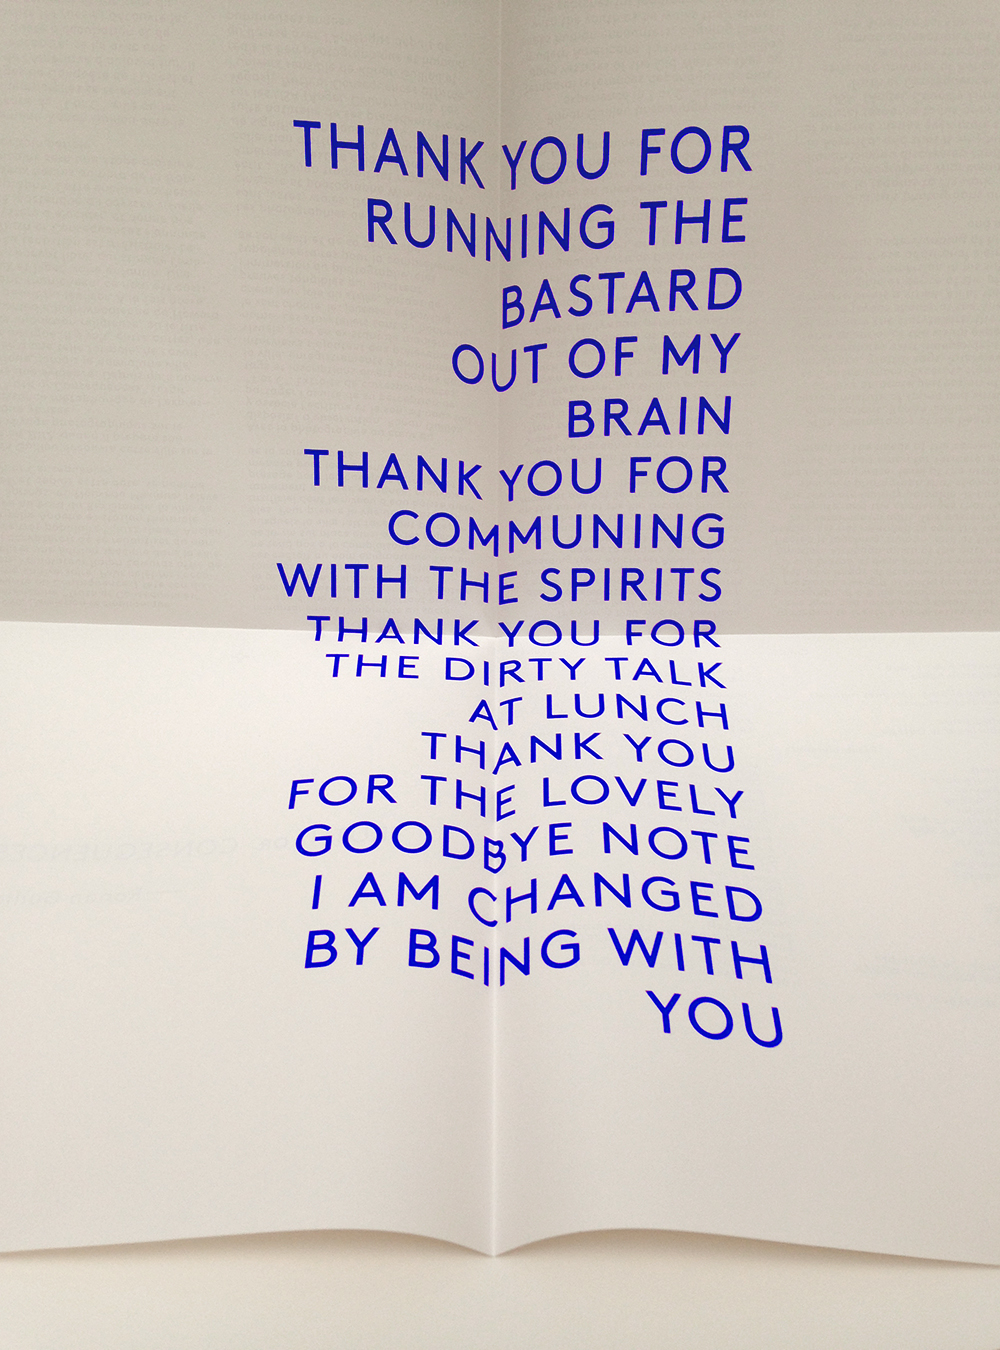 THANK YOU FOR
RUNNING THE
BASTARD
OUT OF MY
BRAIN
THANK YOU FOR
COMMUNING
WITH THE SPIRITS
THANK YOU FOR
THE DIRTY TALK
AT LUNCH
THANK YOU
FOR THE LOVELY
GOODBYE NOTE
I AM CHANGED
BY BEING WITH
YOU